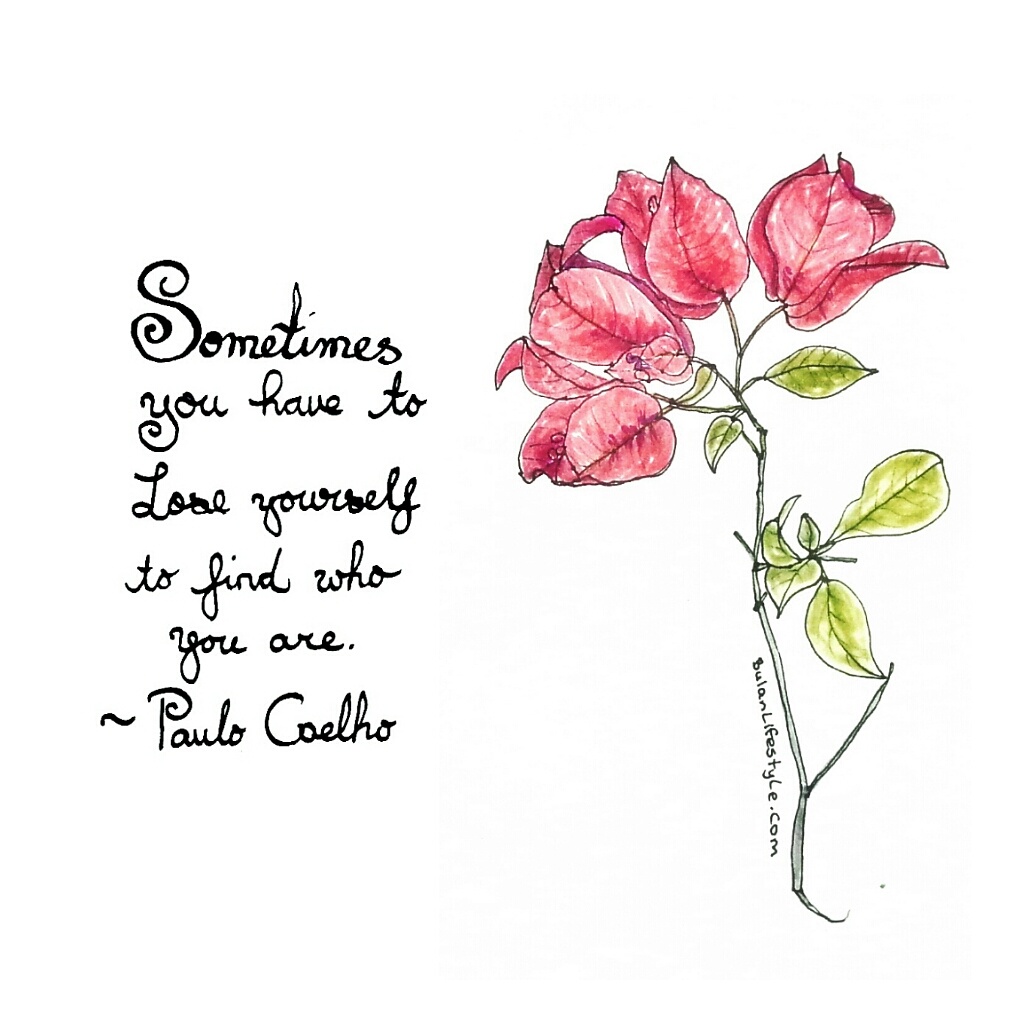 Sometimes
you have to
Lose yourself
to find who
you are.
~ Paulo Coelho
BulanLifestyle.com